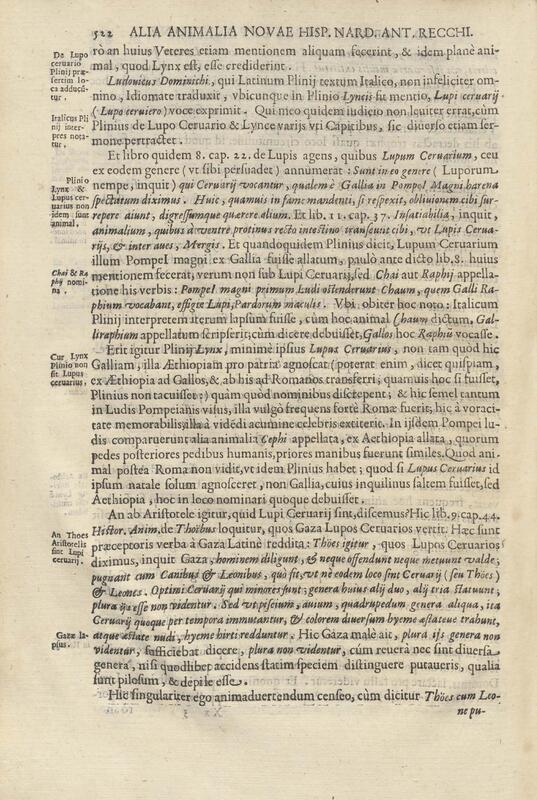 522 ALIA ANIMALIA NOVAE HISP. NARD. ANT. RECCHI.
De Lupo
ceruario
Plinij præ-
sertim lo-
ca adducū-
tur.
rò an huius Veteres etiam mentionem aliquam fecerint, & idem planè ani-
mal, quod Lynx est, esse crediderint.
Ludouicus Dominichi, qui Latinum Plinij textum Italico, non infeliciter om-
nino, Idiomate traduxit, vbicunque in Plinio Lyncis fit mentio, Lupi ceruarij
Italicus Pli
nij inter-
pres nota-
tur.
(Lupo ceruiero) voce exprimit. Qui meo quidem iudicio non leuiter errat, cùm
Plinius de Lupo Ceruario & Lynce varijs vti Capitibus, sic diuerso etiam ser-
mone pertractet.
Et libro quidem 8. cap. 22. de Lupis agens, quibus Lupum Ceruarium, ceu
ex eodem genere (vt sibi persuadet) annumerat: Sunt in eo genere (Luporum
Plinio
Lynx &
Lupus cer-
uarius non
idem sunt
animal.
nempe, inquit) qui Ceruarij vocantur, qualem è Gallia in Pompei Magni harena
spectatum diximus. Huic, quamuis in fame mandenti, si respexit, obliuionem cibi sur-
repere aiunt, digressumque quærere alium. Et lib. 11. cap. 37. Insatiabilia, inquit,
animalium, quibus à ventre protinus recto intestino transeunt cibi, vt Lupis Cerua-
rijs, & inter aues, Mergis. Et quandoquidem Plinius dicit, Lupum Ceruarium
illum Pompei magni ex Gallia fuisse allatum, paulò ante dicto lib. 8. huius
Chai & Ra
phij nomi-
na.
mentionem fecerat, verum non sub Lupi Ceruarij, sed Chai aut Raphij appella-
tione his verbis: Pompei magni primum Ludi ostenderunt Chaum, quem Galli Ra-
phium vocabant, effigie Lupi, Pardorum maculis. Vbi obiter hoc noto: Italicum
Plinij interpretem iterum lapsum fuisse, cùm hoc animal Chaum dictum, Gal-
liraphium appellatum scripserit; cùm dicere debuisset, Gallos hoc Raphiū vocasse.
Erit igitur Plinij Lynx, minimè ipsius Lupus Ceruarius, non tam quòd hic
Cur Lynx
Plinio non
sit Lupus
ceruarius.
Galliam, illa Æthiopiam pro patria agnoscat (poterat enim, dicet quispiam,
ex Æthiopia ad Gallos, & ab his ad Romanos transferri; quamuis hoc si fuisset,
Plinius non tacuisset:) quàm quòd nominibus discrepent; & hic semel tantum
in Ludis Pompeianis visus, illa vulgò frequens fortè Romæ fuerit; hic à voraci-
tate memorabilis, illa à vidēdi acumine celebris extiterit. In ijsdem Pompei lu-
dis comparuerunt alia animalia Cephi appellata, ex Aethiopia allata, quorum
pedes posteriores pedibus humanis, priores manibus fuerunt similes. Quod ani-
mal posteà Roma non vidit, vt idem Plinius habet; quod si Lupus Ceruarius id
ipsum natale solum agnosceret, non Gallia, cuius inquilinus saltem fuisset, sed
Aethiopia, hoc in loco nominari quoque debuisset.
An ab Aristotele igitur, quid Lupi Ceruarij sint, discemus? Hic lib. 9. cap. 44.
An Thoes
Aristotelis
sint Lupi
ceruarij.
Histor. Anim. de Thoibus loquitur, quos Gaza Lupos Ceruarios vertit. Hæc sunt
præceptoris verba à Gaza Latinè reddita: Thoes igitur, quos Lupos Ceruarios
diximus, inquit Gaza, hominem diligunt, & neque offendunt neque metuunt valde;
pugnant cum Canibus & Leonibus, quò fit, vt nè eodem loco sint Ceruarij (seu Thöes)
& Leones. Optimi Ceruarij qui minores sunt; genera huius alij duo, alij tria statuunt;
plura ijs esse non videntur. Sed vt piscium, auium, quadrupedum genera aliqua, ita
Ceruarij quoque per tempora immutantur, & colorem diuersum hyeme æstateue trahunt,
Gazæ la-
psus.
atque æstate nudi, hyeme hirti redduntur. Hic Gaza malè ait, plura ijs genera non
videntur, sufficiebat dicere, plura non videntur, cùm reuerà nec sint diuersa
genera, nisi quodlibet accidens statim speciem distinguere putaueris, qualia
sunt pilosum, & depile esse.
Hic singulariter ego animaduertendum censeo, cùm dicitur Thöes cum Leo-
ne pu-